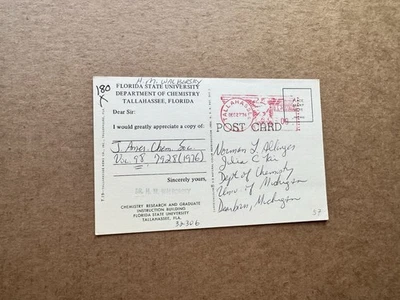 H. M. WALBORSKY
180
FLORIDA STATE UNIVERSITY
DEPARTMENT OF CHEMISTRY
TALLAHASSEE, FLORIDA
Dear Sir:
I would greatly appreciate a copy of:
J. Amer. Chem. Soc.
98, 7928 (1976)
Sincerely yours,
CHEMISTRY RESEARCH AND GRADUATE
INSTRUCTION BUILDING
FLORIDA STATE UNIVERSITY
TALLAHASSEE, FLA.
32306
TALLAHASSEE
POST CARD
Norman L.
Julia C.
Dept of Chemistry
Univ. of Michigan
Dearborn, Michigan